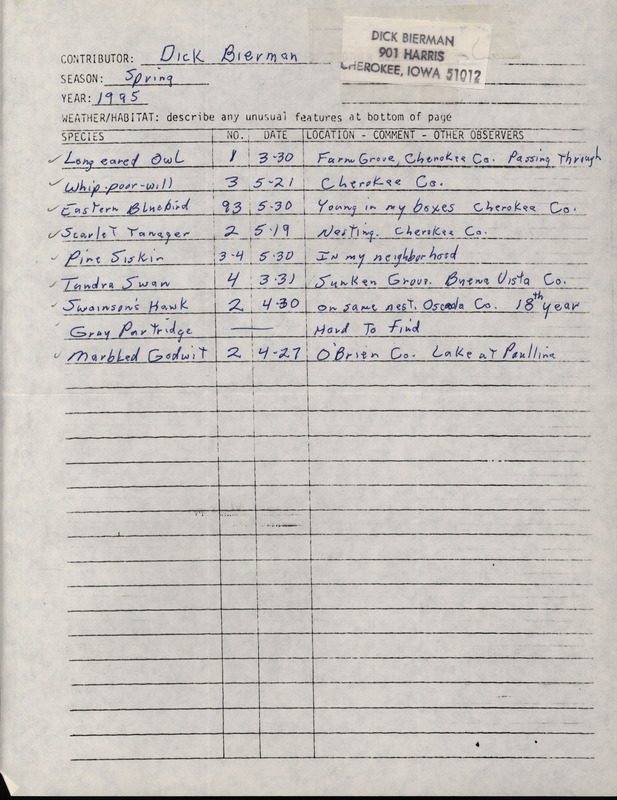 DICK BIERMAN
901 HARRIS
CHEROKEE, IOWA 51012
CONTRIBUTOR: Dick Bierman
SEASON: Spring
YEAR: 1995
WEATHER/HABITAT: describe any unusual features at bottom of page
SPECIES NO. DATE LOCATION - COMMENT - OTHER OBSERVERS
✓ Long eared Owl 1 3-30 Farm Grove, Cherokee Co. Passing Through
✓ Whip-poor-will 3 5-21 Cherokee Co.
✓ Eastern Bluebird 93 5-30 Young in my boxes Cherokee Co.
✓ Scarlet Tanager 2 5-19 Nesting. Cherokee Co.
✓ Pine Siskin 3-4 5-30 In my neighborhood
✓ Tundra Swan 4 3-31 Sunken Grove. Buena Vista Co.
✓ Swainson's Hawk 2 4-30 on same nest. Osceola Co. 18th year
✓ Gray Partridge — Hard To Find
✓ Marbled Godwit 2 4-27 O'Brien Co. Lake at Paullina